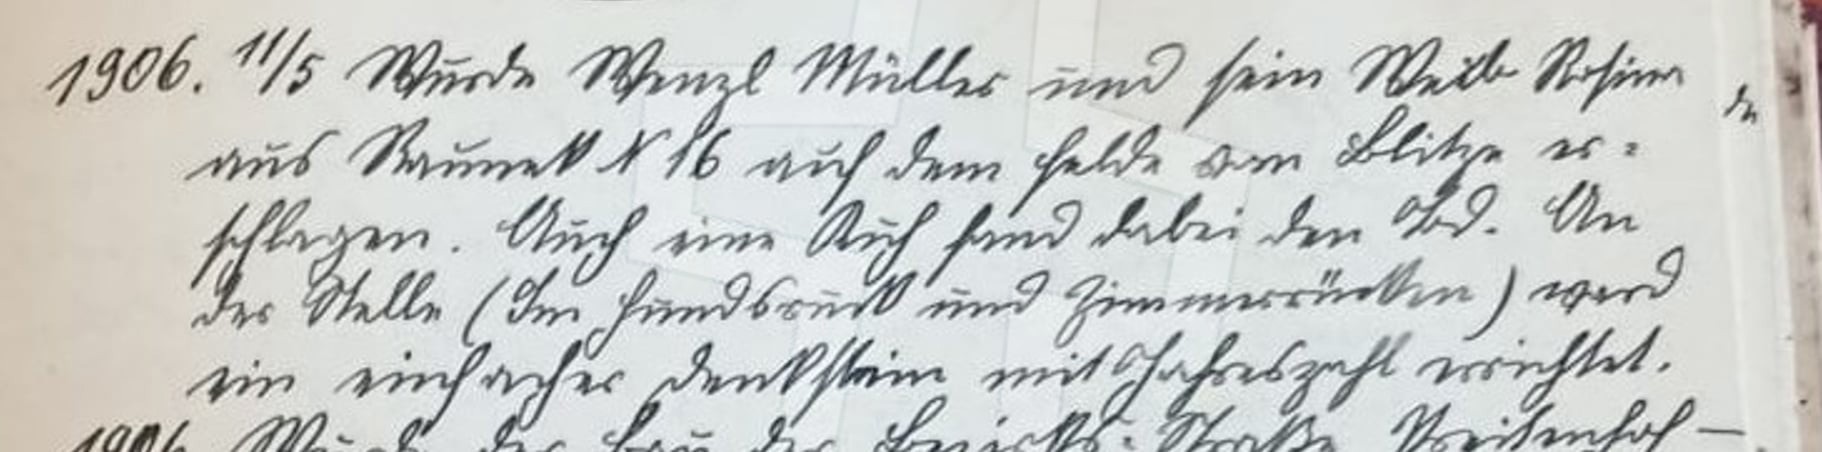 1906. 11/5 Wurde Wenzl Müller und sein Weib Rosina
aus Raunek N 16 auf dem Felde vom Blitze er=
schlagen. Auch eine Kuh fand dabei den Tod. An
der Stelle (Im Hundsruck und Zimmerrücken) ward
ein einfacher Denkstein mit Jahreszahl errichtet.
1906 Wurde der Bau der Bezirks= Straße